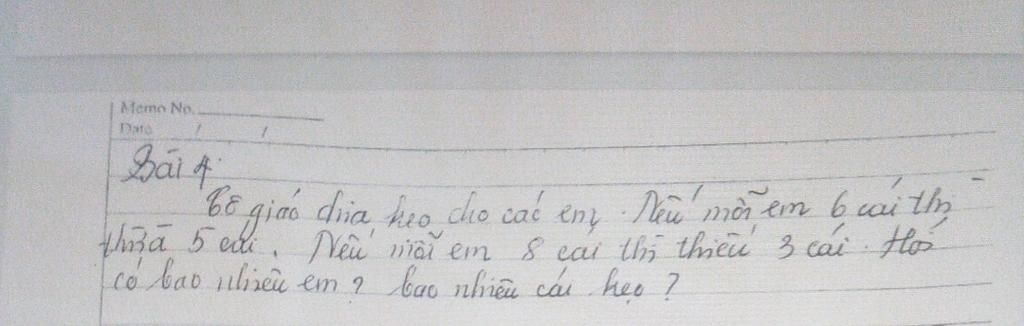 Memo No.
Date / /
Bài 4
Cô giáo chia kẹo cho các em. Nếu mỗi em 6 cái thì
thừa 5 cái. Nếu mỗi em 8 cái thì thiếu 3 cái. Hỏi
có bao nhiêu em? bao nhiêu cái kẹo?